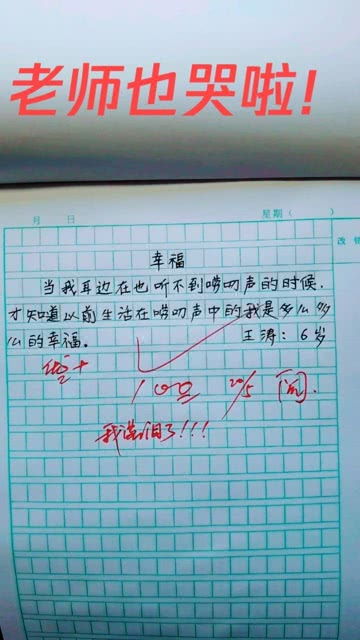 老师也哭啦!
月 日 星期( )
改错
幸福
当我耳边在也听不到唠叨声的时候.
才知道以前生活在唠叨声中的我是多么多
么的幸福。 王涛:6岁
100 20/5 阅.
我流泪了!!!